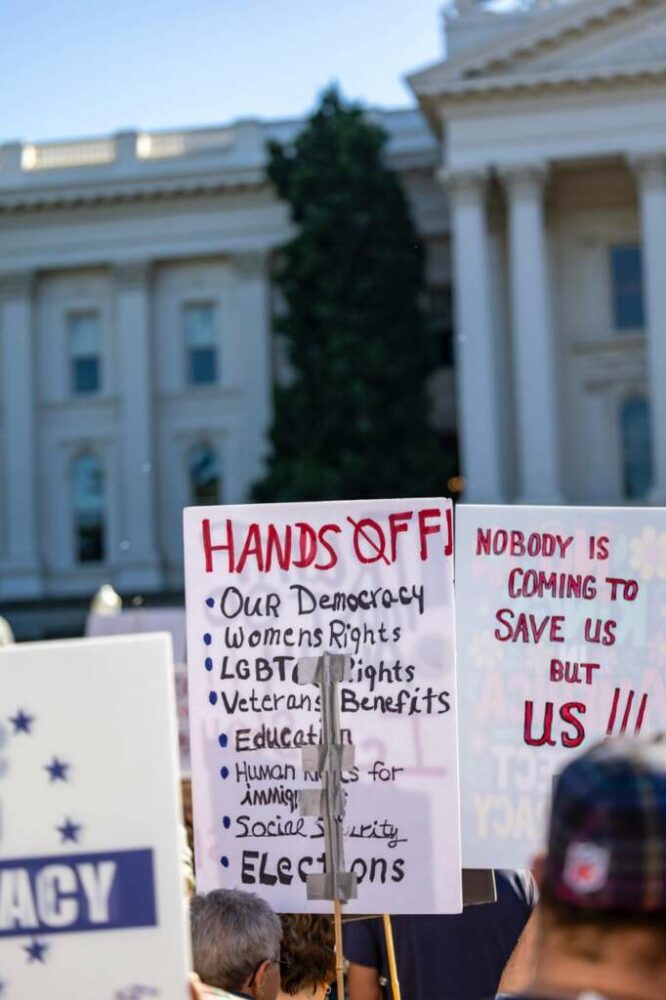 HANDS OFF!
• Our Democracy
• Womens Rights
• LGBT
• Veterans Benefits
• Education
• Human for
• Social Security
• Elections
NOBODY IS
COMING TO
SAVE US
BUT
US!!!
ACY